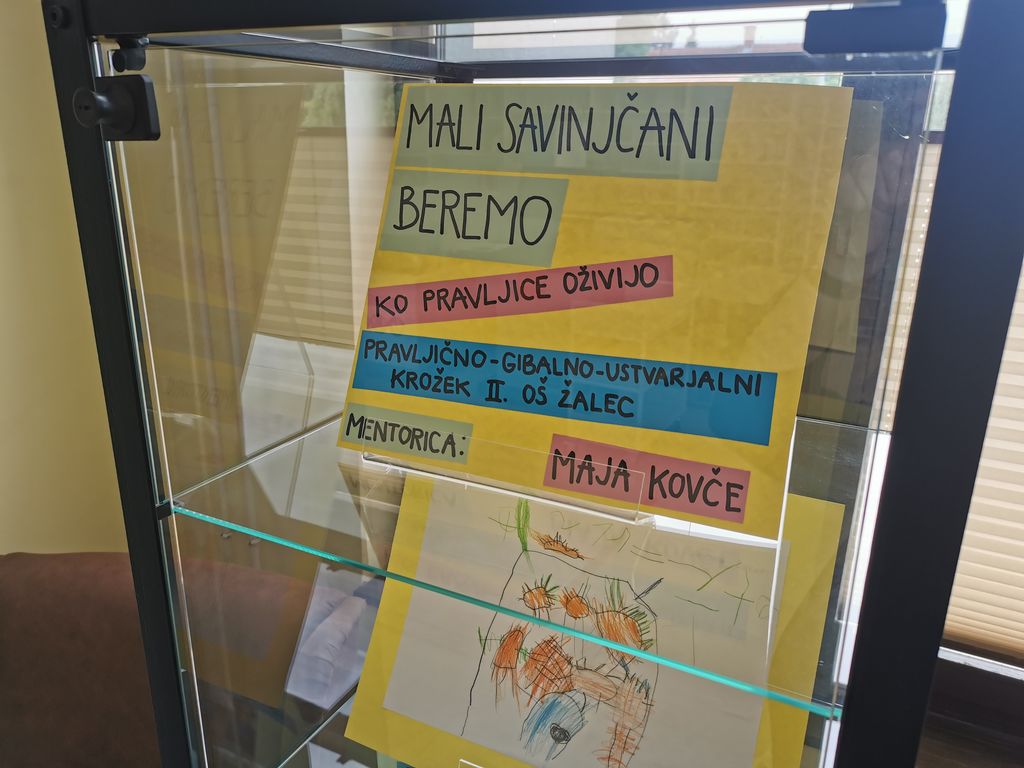 MALI SAVINJČANI
BEREMO
KO PRAVLJICE OŽIVIJO
PRAVLJIČNO-GIBALNO-USTVARJALNI
KROŽEK II. OŠ ŽALEC
MENTORICA:
MAJA KOVČE